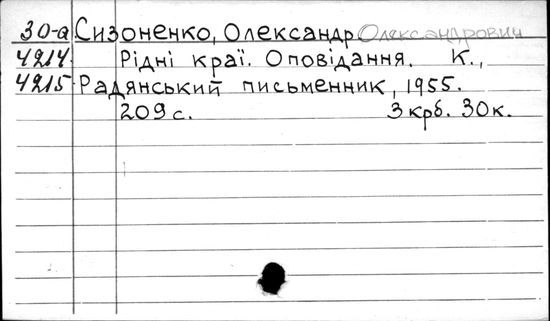 30-а Сизоненко, Олександр Олександрович
4214 Рідні краї. Оповідання. К.,
4215 Радянський письменник, 1955.
209 с. 3 крб. 30 к.